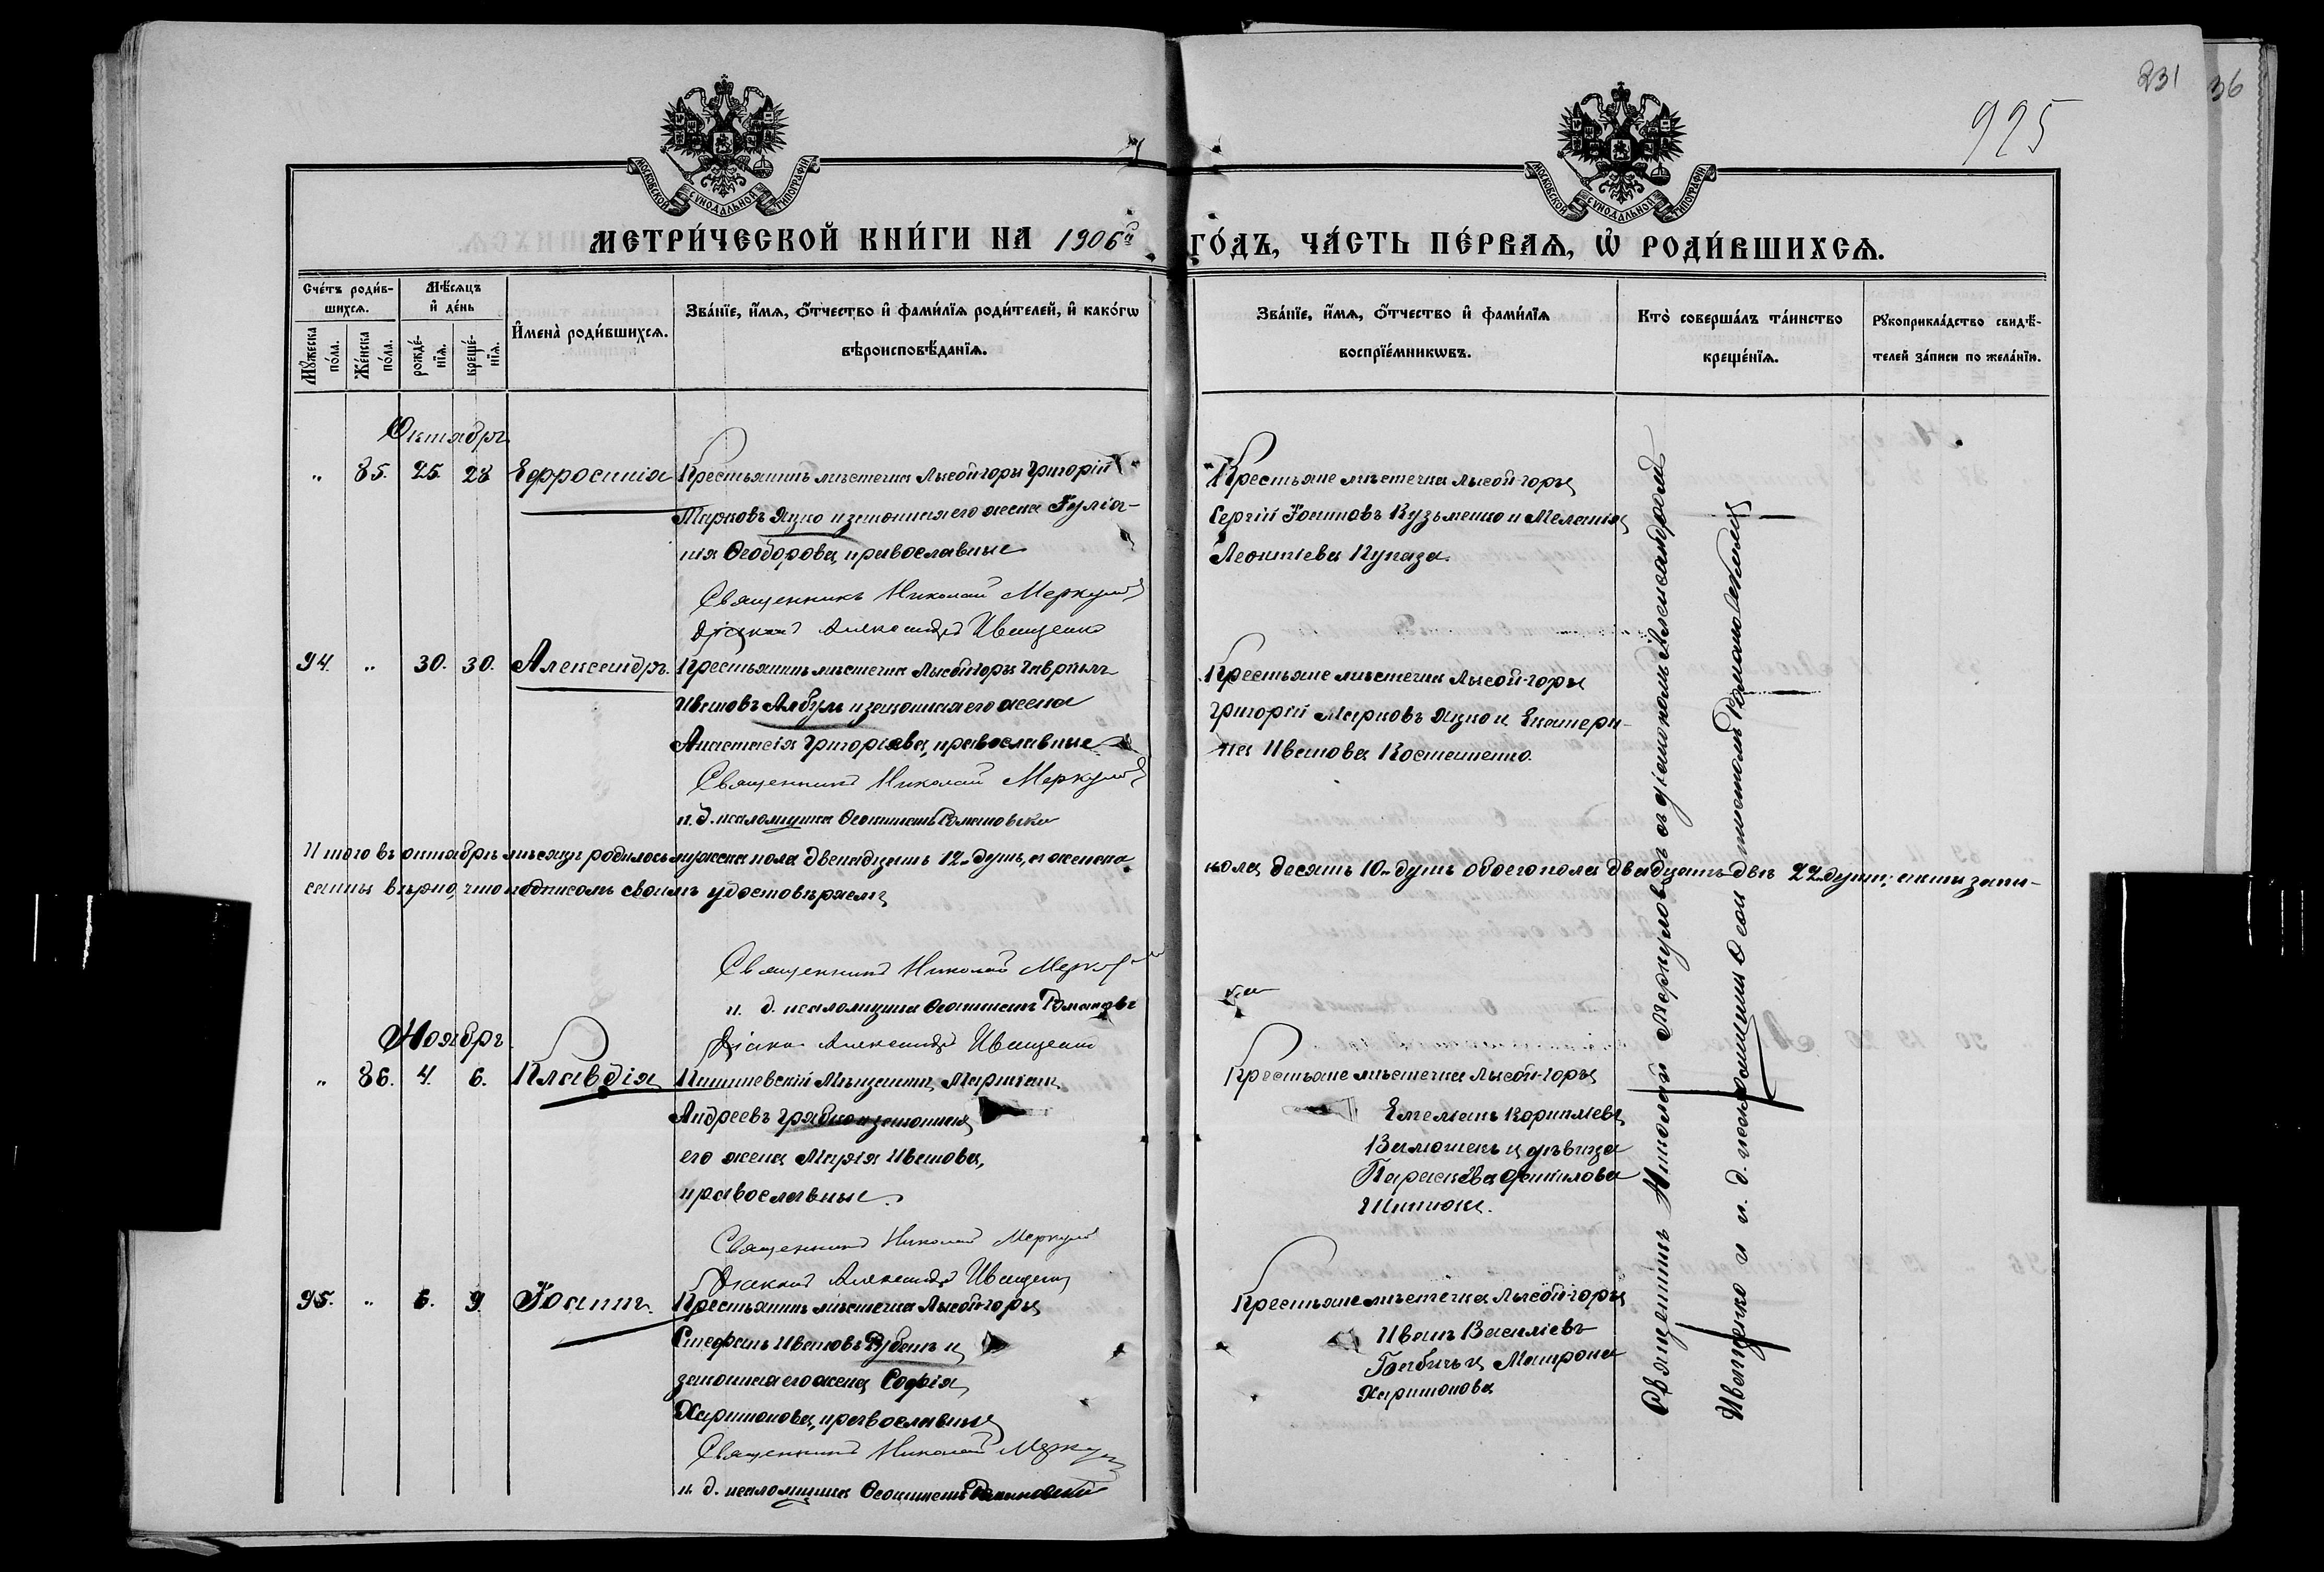 231 36
925
МОСКОВСКОЙ СУНОДАЛЬНОЙ ТИПОГРАФІИ
МОСКОВСКОЙ СУНОДАЛЬНОЙ ТИПОГРАФІИ
МЕТРИ́ЧЕСКОЙ КНИ́ГИ НА 1906й ГО́ДЪ, ЧА́СТЬ ПЕ́РВАѦ, Ѡ РОДИ́ВШИХСѦ.
Сче́тъ роди́в-
шихсѧ.
Мꙋжеска по́ла.
Же́нска по́ла.
Мѣ́сѧцъ и де́нь
рожде́-
нїѧ.
креще́-
нїѧ.
Имена̀ роди́вшихсѧ.
Зва́нїе, и́мѧ, ѻ́тчество и фами́лїѧ роди́телей, и како́гѡ
вѣроисповѣ́данїѧ.
Зва́нїе, и́мѧ, ѻ́тчество и фами́лїѧ
воспрїе́мникѡвъ.
Кто̀ соверша́лъ та́инство
креще́нїѧ.
Рꙋкоприкла́дство свидѣ́-
телей за́писи по жела́нїю.
Октябрь
" 85. 25. 28 Ефросинія
Крестьянинъ мѣстечка Лысой-горы Григорій
Марковъ Яцко и законная его жена Іуліа-
нія Ѳеодорова, православные
Священникъ Николай Меркуловъ
Діаконъ Александръ Иващенко
Крестьяне мѣстечка Лысой-горы
Сергій Іоанновъ Кузьменко и Меланія
Леонтіева
94. " 30. 30. Александръ.
Крестьянинъ мѣстечка Лысой-горы Гавріилъ
Ивановъ Албулъ и законная его жена
Анастасія Григоріева, православные
Священникъ Николай Меркуловъ
и. д. псаломщика Ѳеоктистъ Романовскій
Крестьяне мѣстечка Лысой-горы
Григорій Марковъ Яцко и Екатери-
на Иванова
Итого въ октябрѣ мѣсяцѣ родилось мужска пола двенадцать 12-душъ, а женска
пола десять 10-душъ обоего пола двадцать двѣ 22 души; акты запи-
саны вѣрно, что подписомъ своимъ удостовѣряемъ
Священникъ Николай Меркуловъ
и. д. псаломщика Ѳеоктистъ Романовскій
Діаконъ Александръ Иващенко
Ноябрь
" 86. 4. 6. Клавдія
Кишиневскій Мѣщанинъ,
Андреевъ Грабко и законная
его жена Марія Иванова,
православные.
Священникъ Николай Меркуловъ
Діаконъ Александръ Иващенко
Крестьяне мѣстечка Лысой-горы
Емеліанъ Корниліевъ
и дѣвица
Параскева
95. " 6. 9. Іоаннъ.
Крестьянинъ мѣстечка Лысой-горы
Стефанъ Ивановъ Рубанъ и
законная его жена Софія
Харитонова, православные
Священникъ Николай Меркуловъ
и. д. псаломщика Ѳеоктистъ Романовскій
Крестьяне мѣстечка Лысой-горы
Иванъ Василіевъ
Бабичъ и Матрона
Харитонова
Священникъ Николай Меркуловъ съ діакономъ Александромъ
Иващенко и и. д. псаломщика Ѳеоктистомъ Романовскимъ